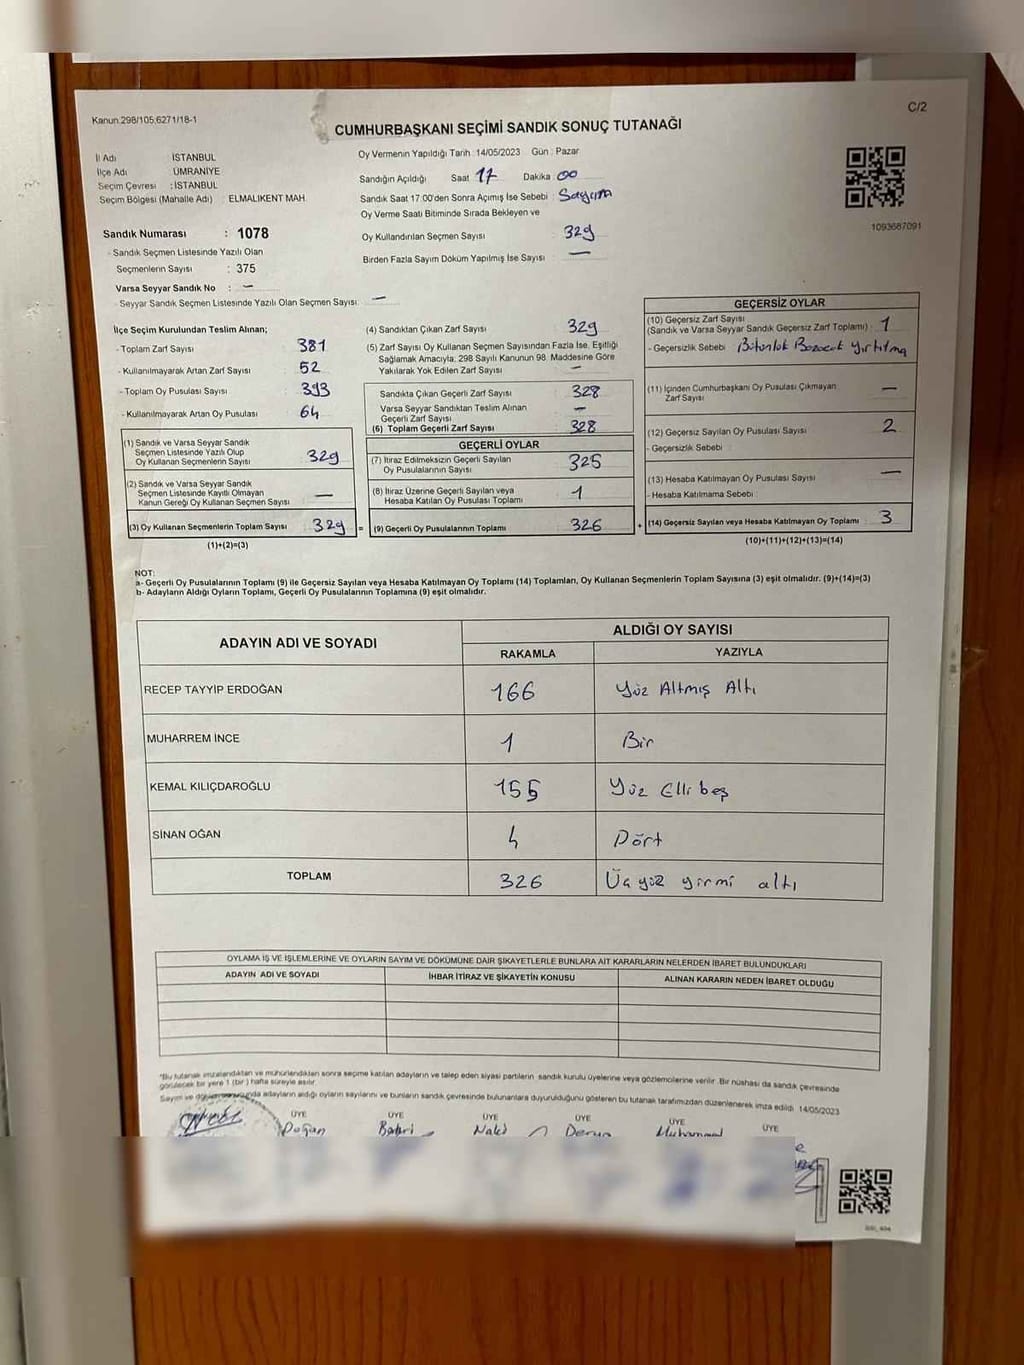 C/2
Kanun 298/105,6271/18-1
CUMHURBAŞKANI SEÇİMİ SANDIK SONUÇ TUTANAĞI
İl Adı İSTANBUL
İlçe Adı ÜMRANİYE
Seçim Çevresi : İSTANBUL
Seçim Bölgesi (Mahalle Adı) ELMALIKENT MAH.
Sandık Numarası : 1078
Sandık Seçmen Listesinde Yazılı Olan
Seçmenlerin Sayısı : 375
Varsa Seyyar Sandık No : —
- Seyyar Sandık Seçmen Listesinde Yazılı Olan Seçmen Sayısı —
Oy Vermenin Yapıldığı Tarih 14/05/2023 Gün : Pazar
Sandığın Açıldığı Saat 17 Dakika 00
Sandık Saat 17.00'den Sonra Açılmış İse Sebebi Sayım
Oy Verme Saati Bitiminde Sırada Bekleyen ve
Oy Kullandırılan Seçmen Sayısı 329
Birden Fazla Sayım Döküm Yapılmış İse Sayısı —
1093687091
İlçe Seçim Kurulundan Teslim Alınan;
- Toplam Zarf Sayısı 381
- Kullanılmayarak Artan Zarf Sayısı 52
- Toplam Oy Pusulası Sayısı 393
- Kullanılmayarak Artan Oy Pusulası 64
(1) Sandık ve Varsa Seyyar Sandık
Seçmen Listesinde Yazılı Olup
Oy Kullanan Seçmenlerin Sayısı 329
(2) Sandık ve Varsa Seyyar Sandık
Seçmen Listesinde Kayıtlı Olmayan
Kanun Gereği Oy Kullanan Seçmen Sayısı —
(3) Oy Kullanan Seçmenlerin Toplam Sayısı 329 =
(1)+(2)=(3)
(4) Sandıktan Çıkan Zarf Sayısı 329
(5) Zarf Sayısı Oy Kullanan Seçmen Sayısından Fazla İse, Eşitliği
Sağlamak Amacıyla; 298 Sayılı Kanunun 98. Maddesine Göre
Yakılarak Yok Edilen Zarf Sayısı —
Sandıkta Çıkan Geçerli Zarf Sayısı 328
Varsa Seyyar Sandıktan Teslim Alınan
Geçerli Zarf Sayısı —
(6) Toplam Geçerli Zarf Sayısı 328
GEÇERLİ OYLAR
(7) İtiraz Edilmeksizin Geçerli Sayılan
Oy Pusulalarının Sayısı 325
(8) İtiraz Üzerine Geçerli Sayılan veya
Hesaba Katılan Oy Pusulası Toplamı 1
(9) Geçerli Oy Pusulalarının Toplamı 326 +
GEÇERSİZ OYLAR
(10) Geçersiz Zarf Sayısı
(Sandık ve Varsa Seyyar Sandık Geçersiz Zarf Toplamı) 1
- Geçersizlik Sebebi Bütünlük Bozacak Yırtılma
(11) İçinden Cumhurbaşkanı Oy Pusulası Çıkmayan
Zarf Sayısı —
(12) Geçersiz Sayılan Oy Pusulası Sayısı 2
- Geçersizlik Sebebi
(13) Hesaba Katılmayan Oy Pusulası Sayısı —
- Hesaba Katılmama Sebebi
(14) Geçersiz Sayılan veya Hesaba Katılmayan Oy Toplamı 3
(10)+(11)+(12)+(13)=(14)
NOT:
a- Geçerli Oy Pusulalarının Toplamı (9) ile Geçersiz Sayılan veya Hesaba Katılmayan Oy Toplamı (14) Toplamları, Oy Kullanan Seçmenlerin Toplam Sayısına (3) eşit olmalıdır. (9)+(14)=(3)
b- Adayların Aldığı Oyların Toplamı, Geçerli Oy Pusulalarının Toplamına (9) eşit olmalıdır.
ADAYIN ADI VE SOYADI ALDIĞI OY SAYISI
RAKAMLA YAZIYLA
RECEP TAYYİP ERDOĞAN 166 Yüz Altmış Altı
MUHARREM İNCE 1 Bir
KEMAL KILIÇDAROĞLU 155 Yüz Elli beş
SİNAN OĞAN 4 Dört
TOPLAM 326 Üç yüz yirmi altı
OYLAMA İŞ VE İŞLEMLERİNE VE OYLARIN SAYIM VE DÖKÜMÜNE DAİR ŞİKAYETLERLE BUNLARA AİT KARARLARIN NELERDEN İBARET BULUNDUKLARI
ADAYIN ADI VE SOYADI İHBAR İTİRAZ VE ŞİKAYETİN KONUSU ALINAN KARARIN NEDEN İBARET OLDUĞU
*Bu tutanak imzalandıktan ve mühürlendikten sonra seçime katılan adayların ve talep eden siyasi partilerin sandık kurulu üyelerine veya gözlemcilerine verilir. Bir nüshası da sandık çevresinde
görülecek bir yere 1 (bir) hafta süreyle asılır.
Sayım ve adayların aldığı oyların sayılarını ve bunların sandık çevresinde bulunanlara duyurulduğunu gösteren bu tutanak tarafımızdan düzenlenerek imza edildi. 14/05/2023
ÜYE ÜYE ÜYE ÜYE ÜYE ÜYE
Doğan Naki Derya Muhammed